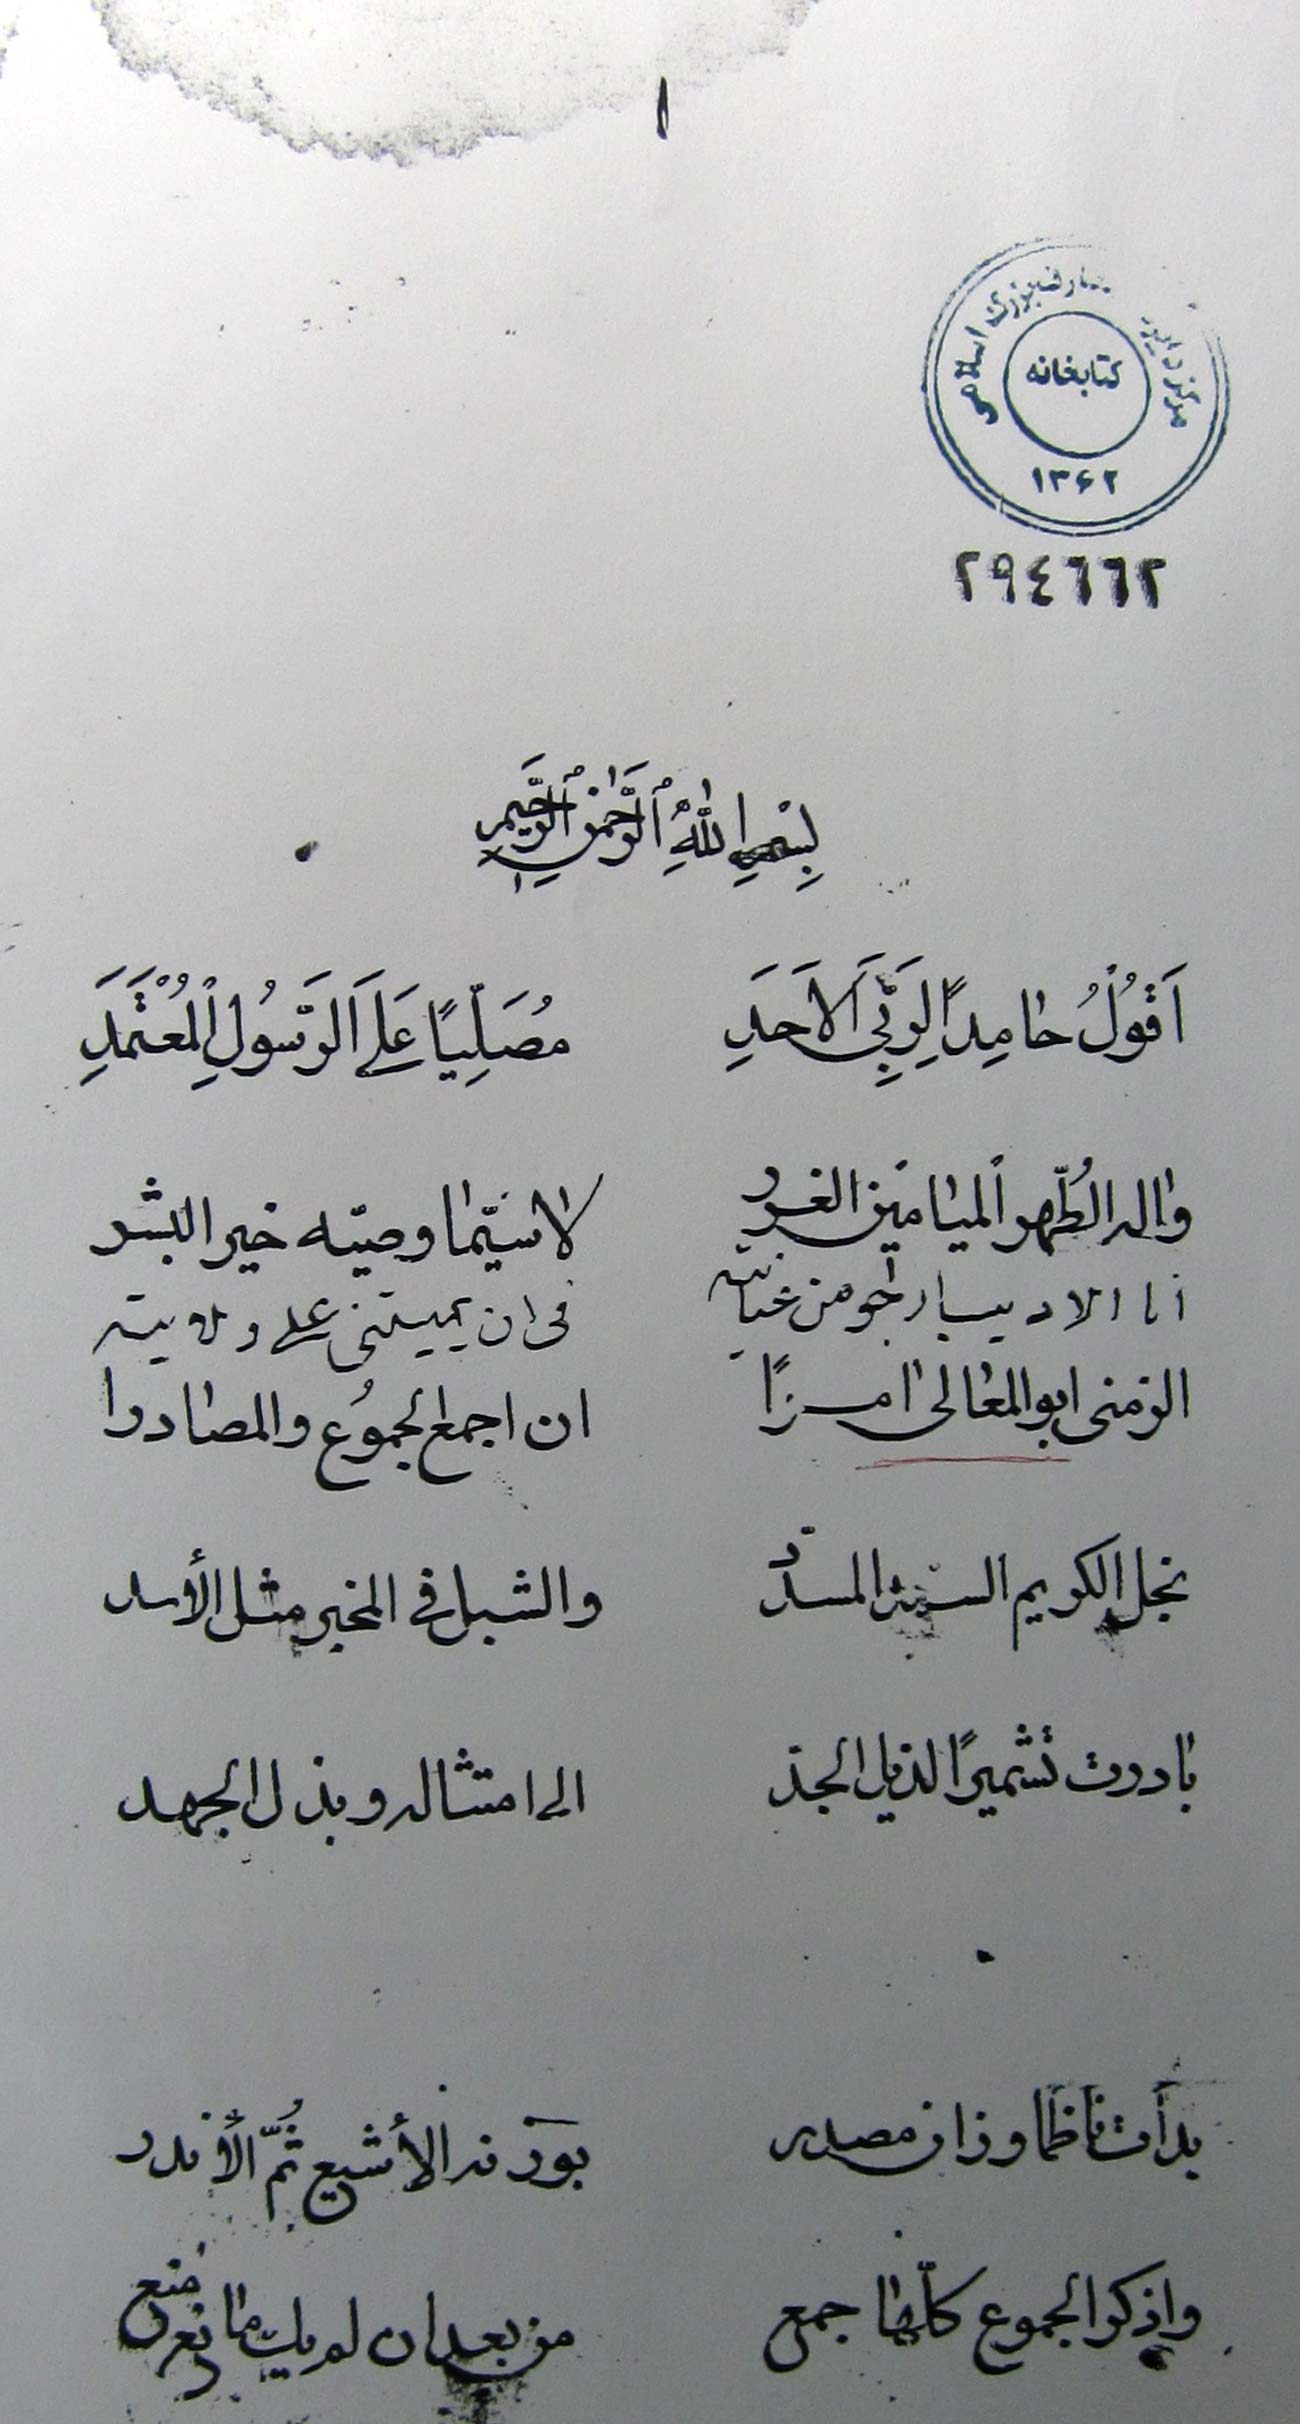 ١
مرکز دایرة المعارف بزرگ اسلامی
کتابخانه
۱۳۶۲
٢٩٤٦٦٢
بِسْمِ اللهِ ٱلرَّحْمٰنِ ٱلرَّحَيمِ
اَقُولُ حامِداً لِرَبِّى اَلاَحَدِ مُصَلِّيًا عَلَى اَلرَّسُولِ اٱلمُعْتَمَدِ
واله الطُّهر ٱلميامين الغرر لا سيّما وصيّه خير البشر
انا الاديب ارجو من عنايته فى ان يميتنى على ولايته
الزمنى ابو المعالى امراً ان اجمع الجموُع والمصادرا
نجل الكريم السيد المسدّد والشبل فى المخبر مثل الأسد
بادرت تشميرًا لذيل الجدّ الى امتثاله وبذل الجهد
بدأت ناظما وزان مصدر بوزنه الأشيع ثُمّ الأندر
واذكر الجموع كلّها جمع من بعد ان لم يك مانع منع